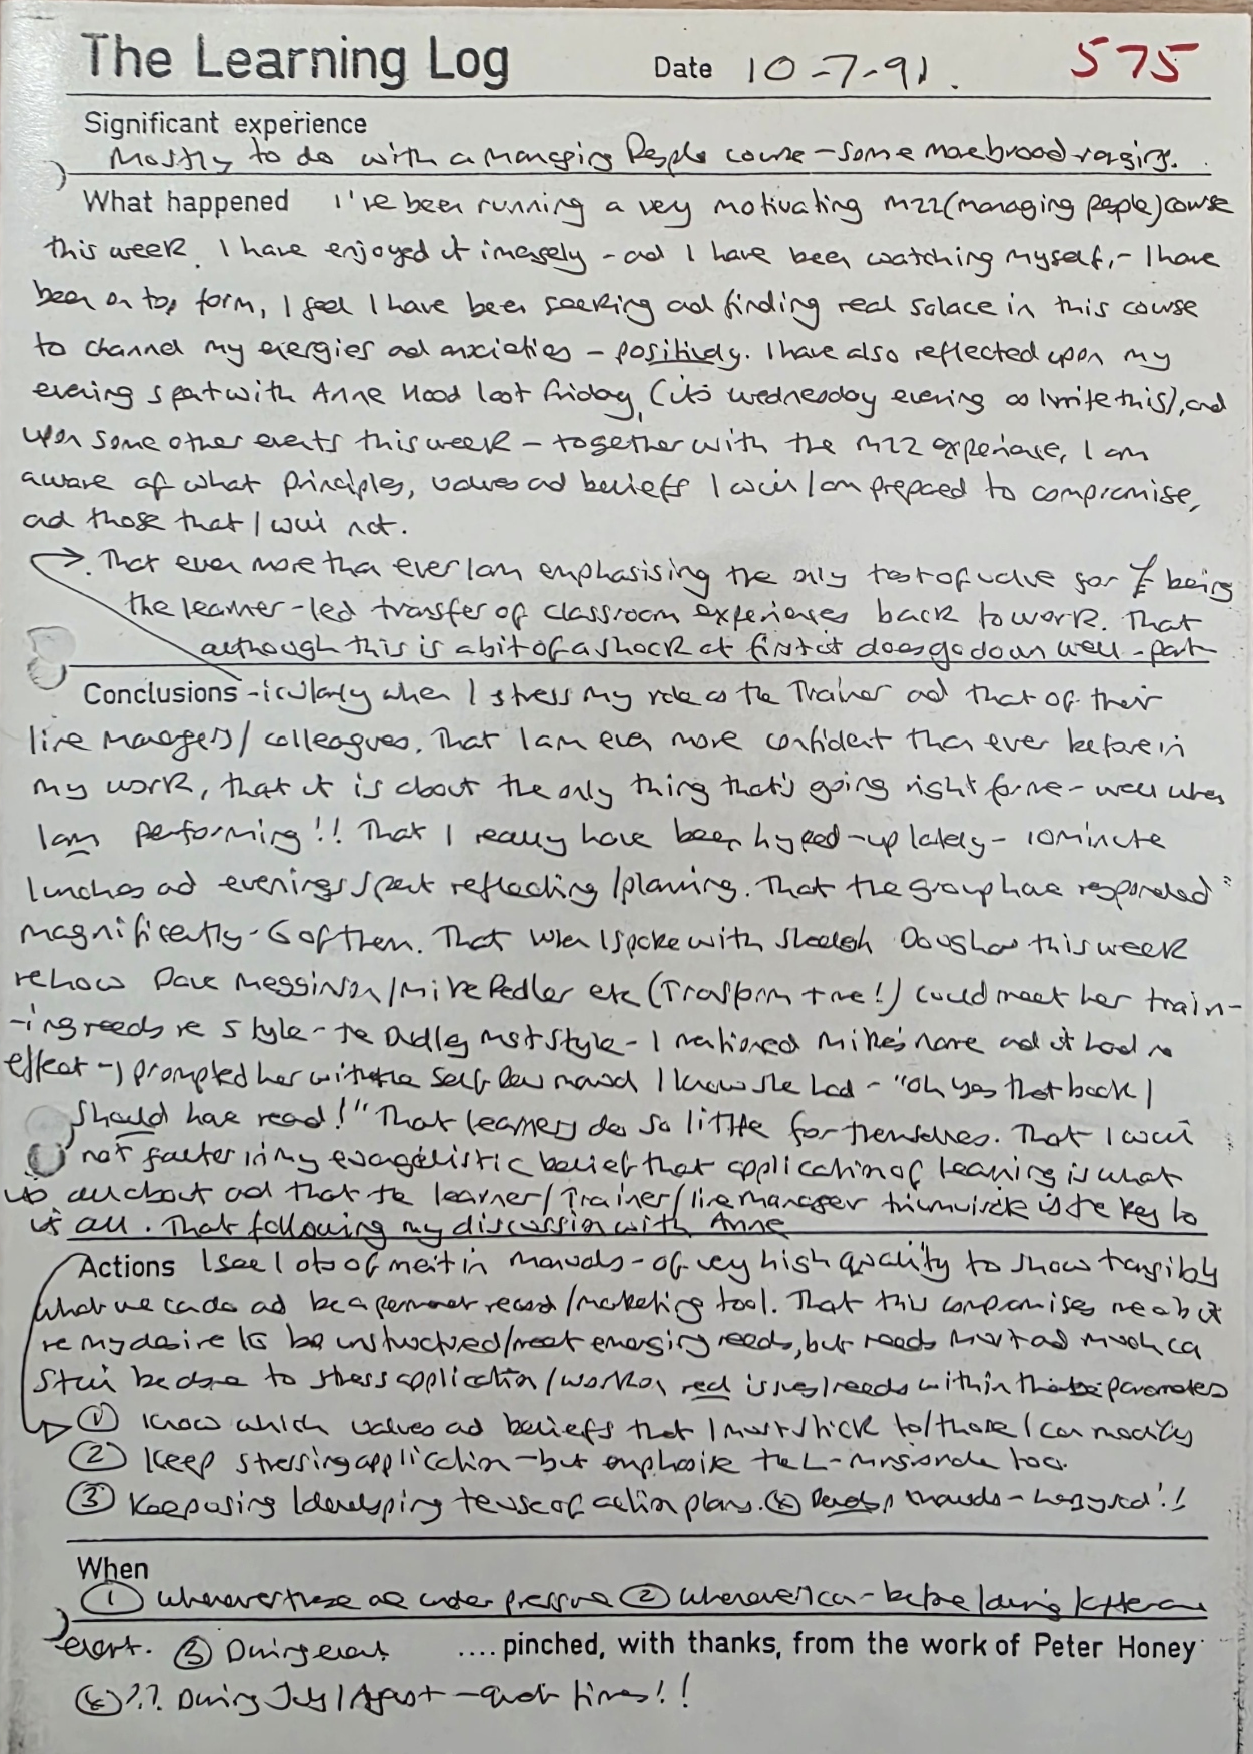 The Learning Log Date 10-7-91. 575
Significant experience
Mostly to do with a Managing People course - some more broad-ranging.
What happened I've been running a very motivating M22 (managing people) course
this week. I have enjoyed it imensely - and I have been watching myself, - I have
been on top form, I feel I have been seeking and finding real solace in this course
to channel my energies and anxieties - positively. I have also reflected upon my
evening spent with Anne Hood last Friday, (its Wednesday evening as I write this), and
upon some other events this week - together with the M22 experience, I am
aware of what principles, values and beliefs I will/am prepared to compromise,
and those that I will not.
That even more than ever I am emphasising the only test of value for T/E being
the learner-led transfer of classroom experiences back to work. That
although this is a bit of a shock at first it does go down well - part-
Conclusions -icularly when I stress my role as the Trainer and that of their
line managers/colleagues. That I am even more confident than ever before in
my work, that it is about the only thing that's going right for me - well when
I am performing!! That I really have been hyped-up lately - 10 minute
lunches and evenings spent reflecting/planning. That the group have responded
magnificently - 6 of them. That when I spoke with this week
re how Dave Megginson/Mike Pedler etc (Transform + me!) could meet her train-
-ing needs re style - the Dudley Mgt Style - I mentioned Mike's name and it had no
effect - I prompted her with the Self Dev manual I know she had - "Oh yes that book I
should have read!" That learners do so little for themselves. That I will
not falter in my evangelistic belief that application of learning is what
its all about and that the learner/Trainer/line manager triumvirate is the key to
it all. That following my discussion with Anne
Actions I see lots of merit in manuals - of very high quality to show tangibly
what we can do and be a permanent record/marketing tool. That this compromises me a bit
re my desire to be unstructured/meet emerging needs, but needs must and much can
still be done to stress application/work on real issues/needs within the parameters
① Know which values and beliefs that I must stick to/those I can modify
② Keep stressing application - but emphasise the L- too.
③ Keep using/developing the use of action plans. ④ Develop manuals - !!
When
① Whenever these are under pressure ② Whenever I can - before/during/after an
event. ③ During event .... pinched, with thanks, from the work of Peter Honey
④ ?? During July/August - quiet times!!